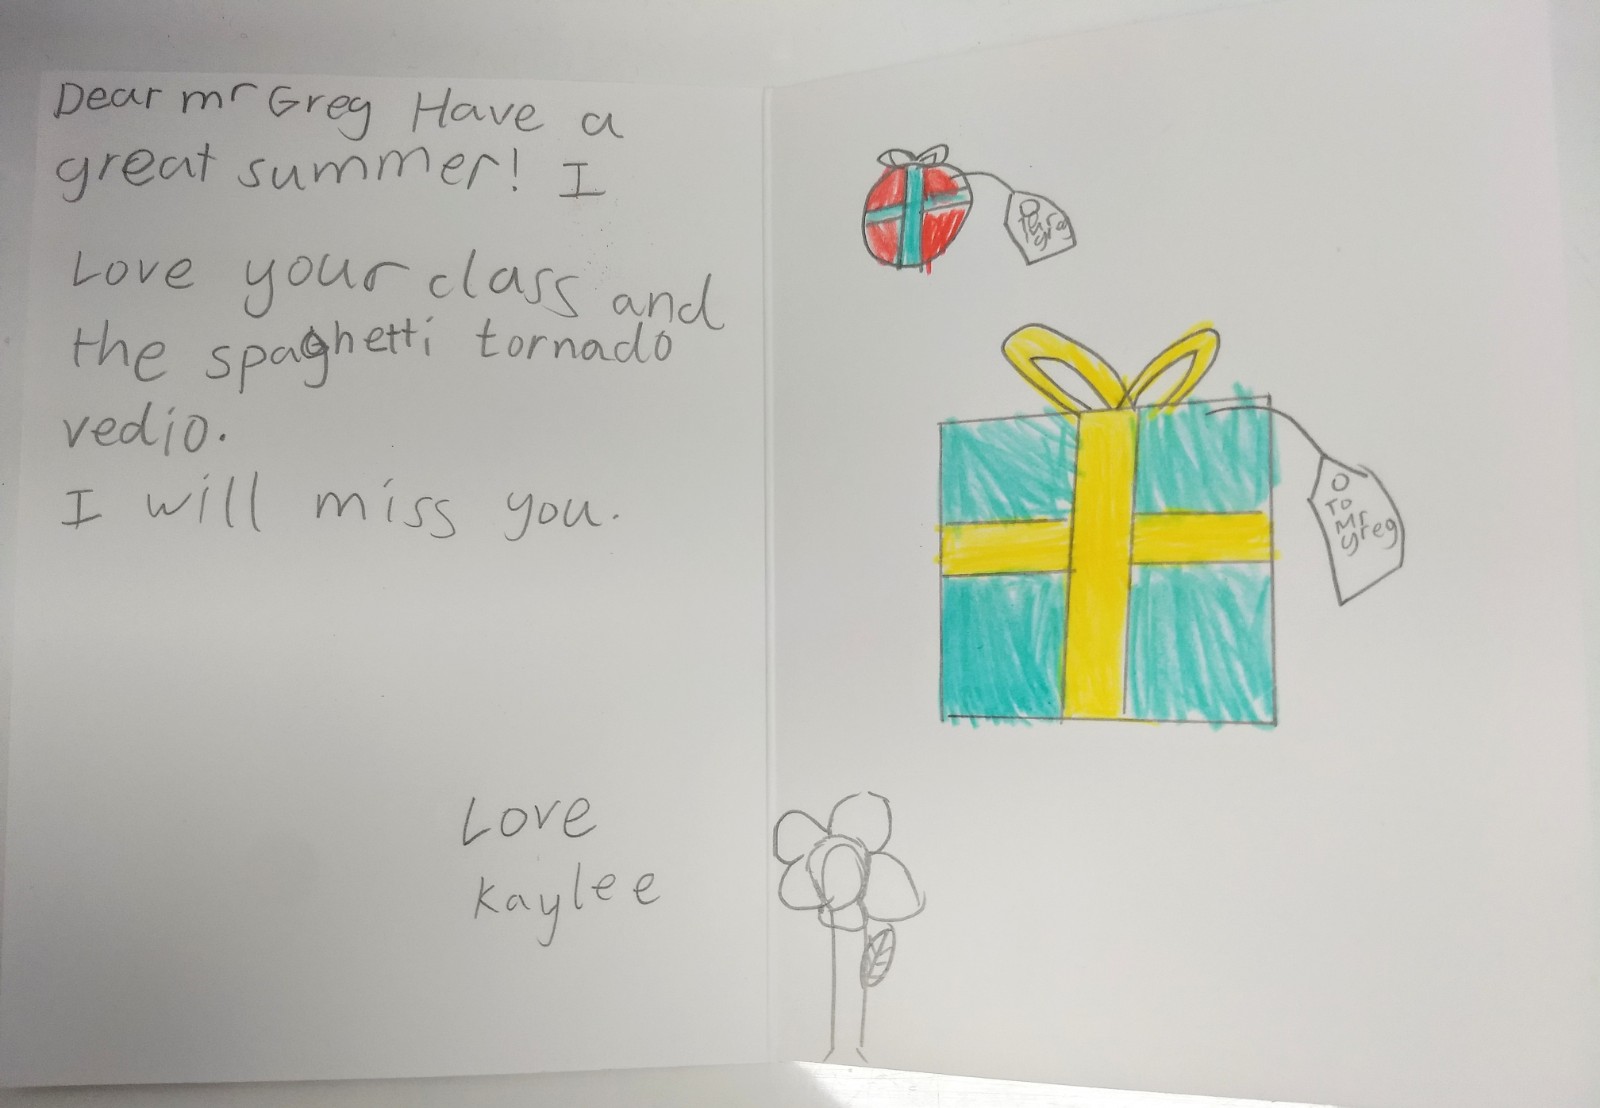 Dear mr Greg Have a
great summer! I
Love your class and
the spaghetti tornado
vedio.
I will miss you.
Love
Kaylee
To
Mr
greg